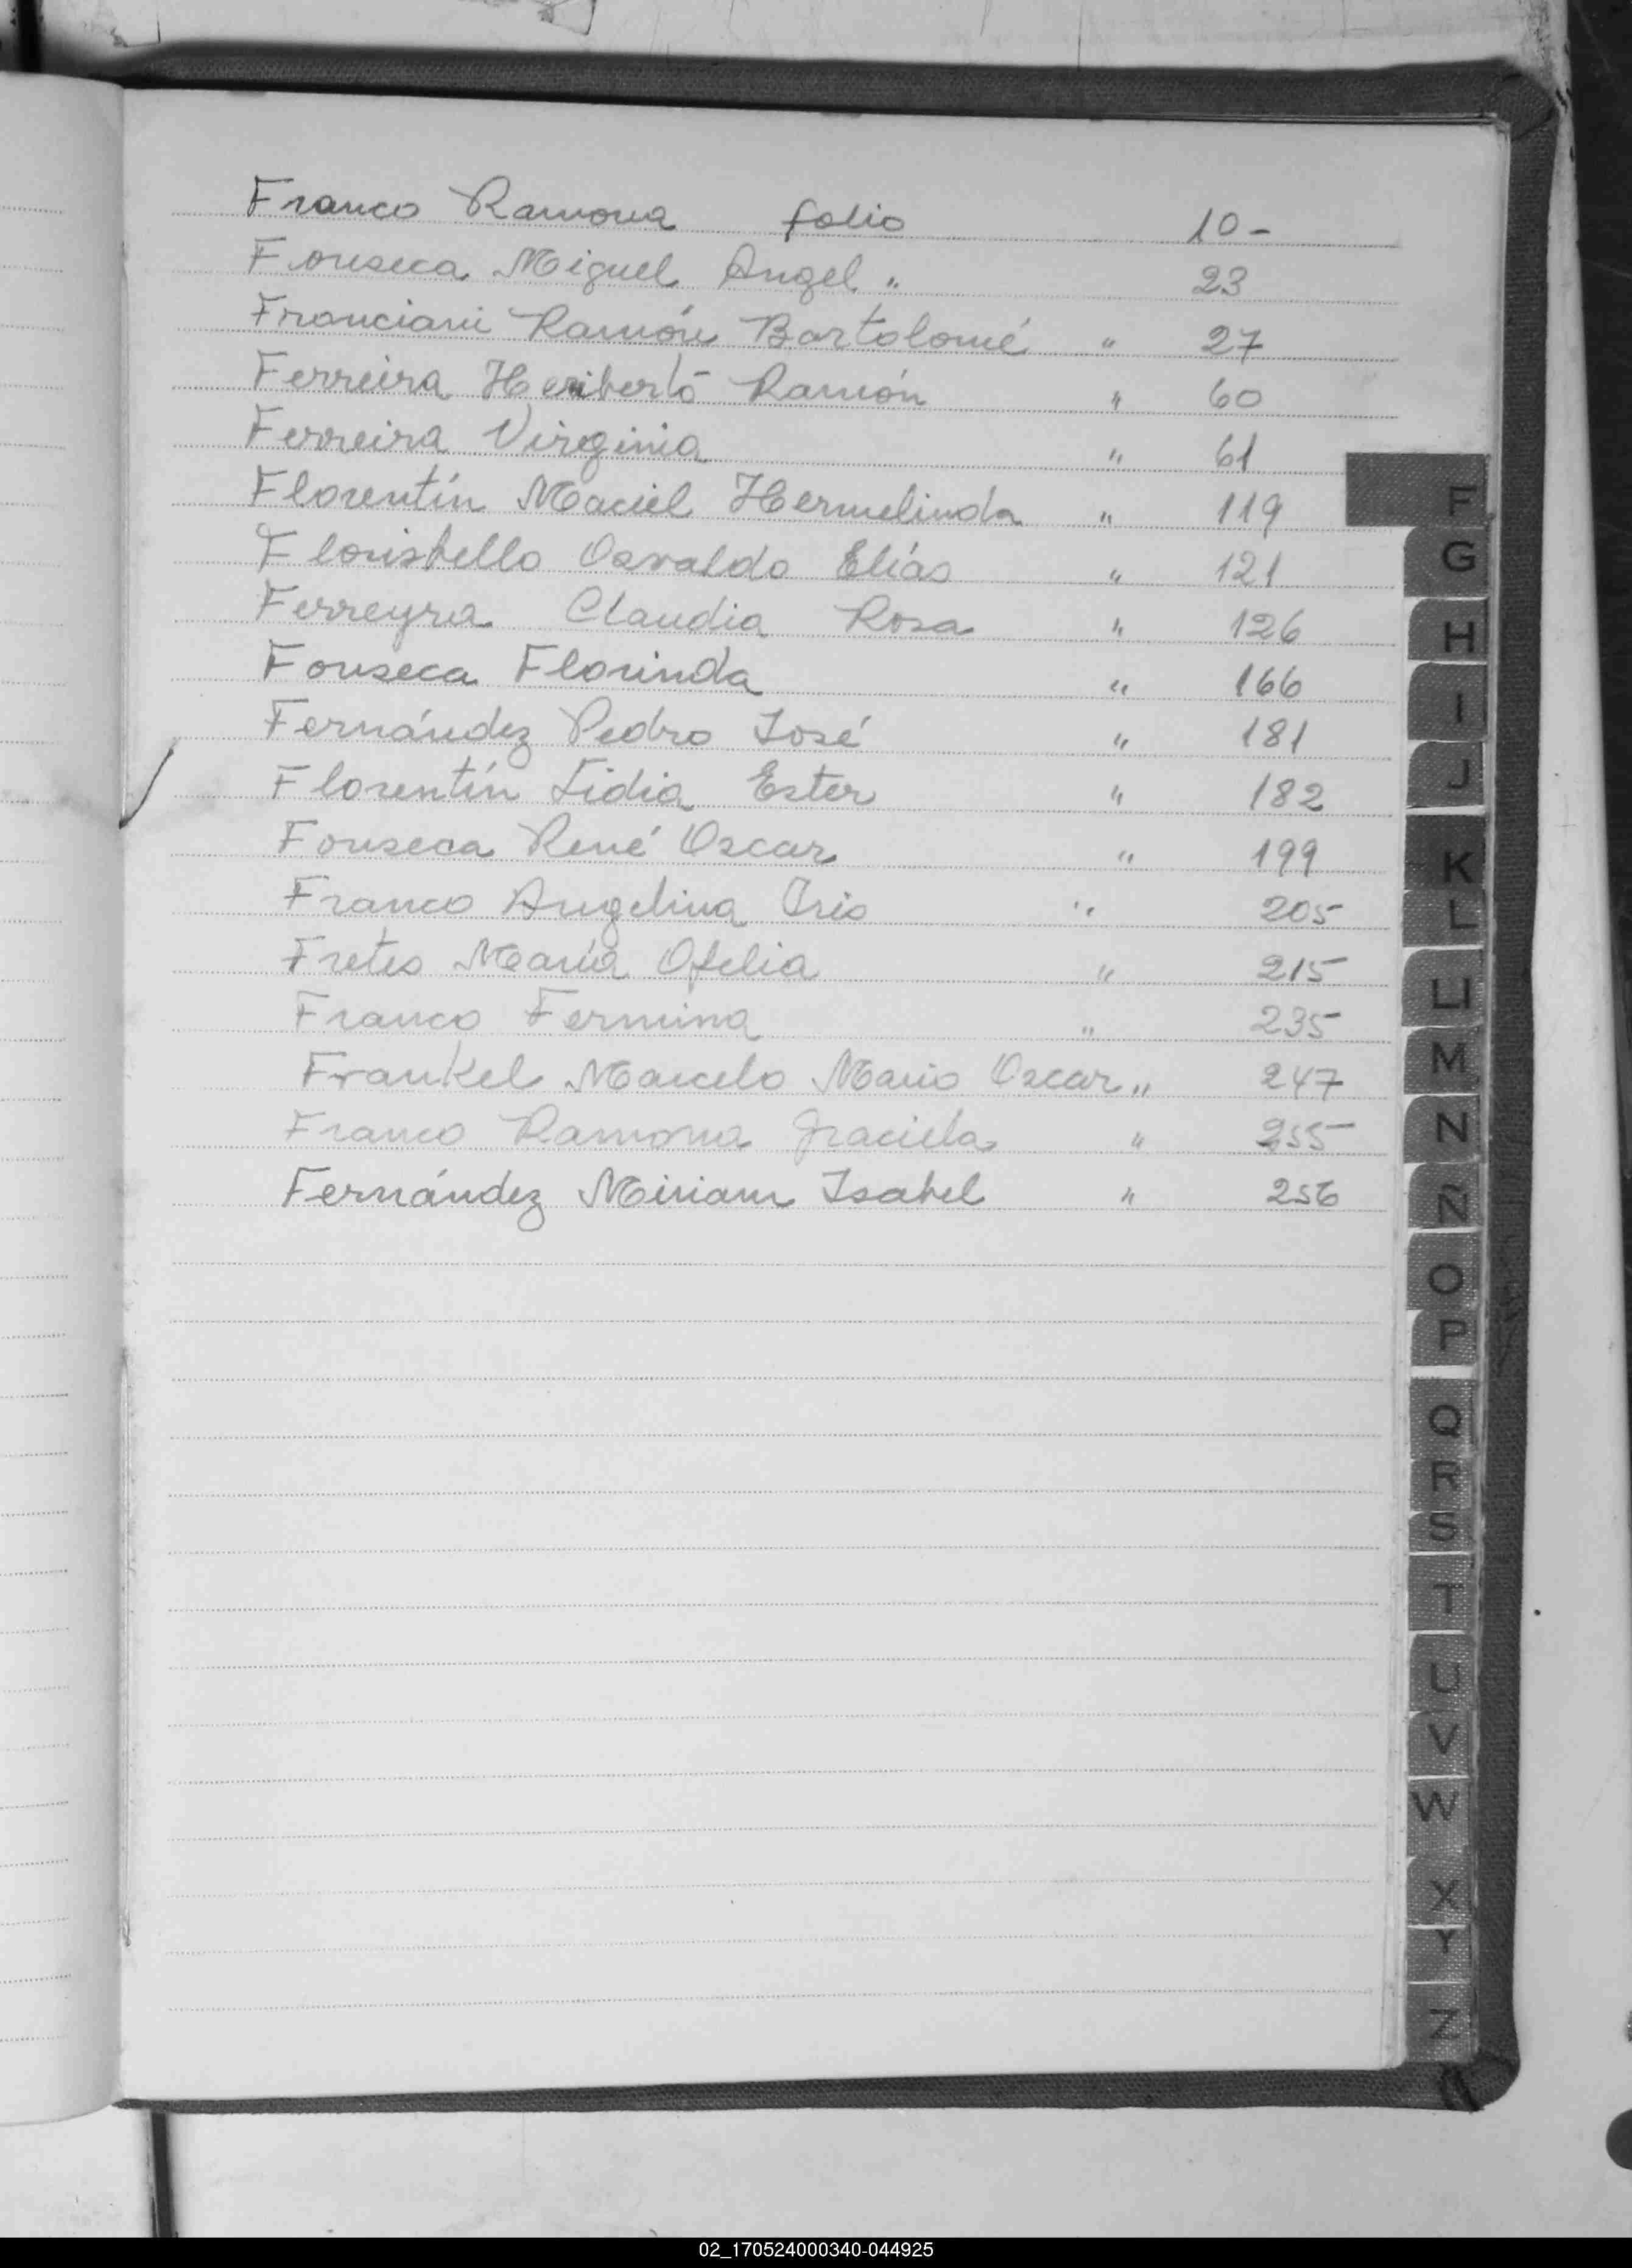 Franco Ramona folio 10 -
Fonseca Miguel Angel " 23
Franciani Ramón Bartolomé " 27
Ferreira Heriberto Ramón " 60
Ferreira Virginia " 61
Florentín Maciel Hermelinda " 119
Floristello Osvaldo Elías " 121
Ferreyra Claudia Rosa " 126
Fonseca Florinda " 166
Fernández Pedro José " 181
Florentín Lidia Ester " 182
Fonseca René Oscar " 199
Franco Angelina Iris " 205
Fretes María Ofelia " 215
Franco Fermina " 235
Frankel Marcelo Mario Oscar " 247
Franco Ramona Graciela " 255
Fernández Miriam Isabel " 256
F
G
H
I
J
K
L
LL
M
N
Ñ
O
P
Q
R
S
T
U
V
W
X
Y
Z
02_170524000340-044925